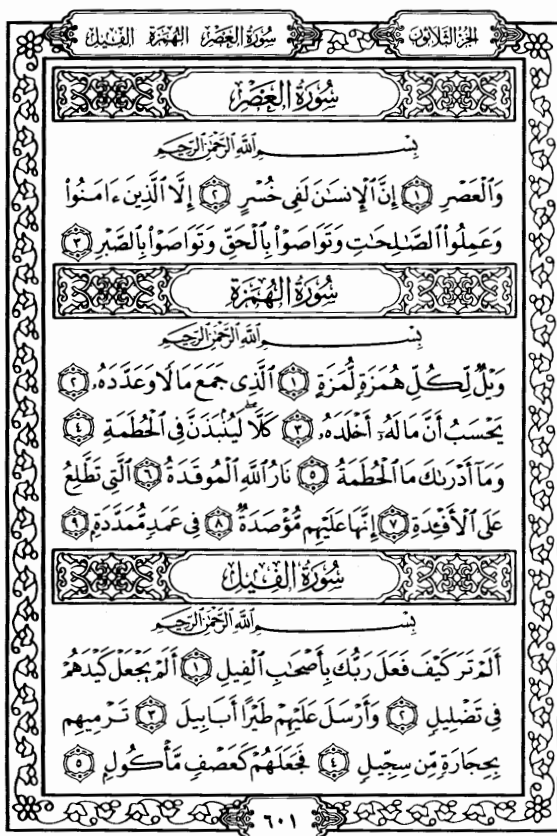 سُورَةُ العَصْرِ الهُمَزَة الفِيل
الجُزْءُ الثَّلَاثُونَ
سُورَةُ العَصْرِ
بِسْمِ ٱللَّهِ ٱلرَّحْمَٰنِ ٱلرَّحِيمِ
وَٱلْعَصْرِ ١ إِنَّ ٱلْإِنسَٰنَ لَفِى خُسْرٍ ٢ إِلَّا ٱلَّذِينَ ءَامَنُوا۟
وَعَمِلُوا۟ ٱلصَّٰلِحَٰتِ وَتَوَاصَوْا۟ بِٱلْحَقِّ وَتَوَاصَوْا۟ بِٱلصَّبْرِ ٣
سُورَةُ الهُمَزَة
بِسْمِ ٱللَّهِ ٱلرَّحْمَٰنِ ٱلرَّحِيمِ
وَيْلٌ لِّكُلِّ هُمَزَةٍ لُّمَزَةٍ ١ ٱلَّذِى جَمَعَ مَالًا وَعَدَّدَهُۥ ٢
يَحْسَبُ أَنَّ مَالَهُۥٓ أَخْلَدَهُۥ ٣ كَلَّا ۖ لَيُنۢبَذَنَّ فِى ٱلْحُطَمَةِ ٤
وَمَآ أَدْرَىٰكَ مَا ٱلْحُطَمَةُ ٥ نَارُ ٱللَّهِ ٱلْمُوقَدَةُ ٦ ٱلَّتِى تَطَّلِعُ
عَلَى ٱلْأَفْـِٔدَةِ ٧ إِنَّهَا عَلَيْهِم مُّؤْصَدَةٌ ٨ فِى عَمَدٍ مُّمَدَّدَةٍۭ ٩
سُورَةُ الفِيل
بِسْمِ ٱللَّهِ ٱلرَّحْمَٰنِ ٱلرَّحِيمِ
أَلَمْ تَرَ كَيْفَ فَعَلَ رَبُّكَ بِأَصْحَٰبِ ٱلْفِيلِ ١ أَلَمْ يَجْعَلْ كَيْدَهُمْ
فِى تَضْلِيلٍ ٢ وَأَرْسَلَ عَلَيْهِمْ طَيْرًا أَبَابِيلَ ٣ تَرْمِيهِم
بِحِجَارَةٍ مِّن سِجِّيلٍ ٤ فَجَعَلَهُمْ كَعَصْفٍ مَّأْكُولٍۭ ٥
٦٠١